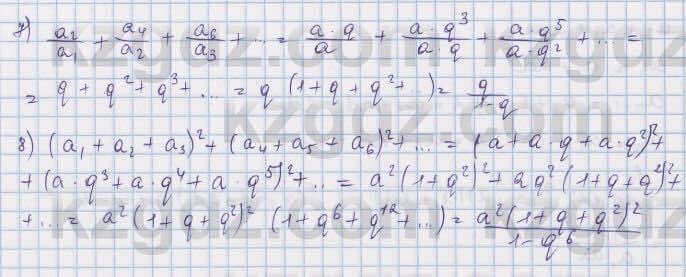 7) a₂/a₁ + a₄/a₂ + a₆/a₃ + ... = a·q/a + a·q³/a·q + a·q⁵/a·q² + ... =
= q + q² + q³ + ... = q (1+q+q²+..) = q/1-q
8) (a₁+a₂+a₃)² + (a₄+a₅+a₆)² + ... = (a+a·q+a·q²)² +
+ (a·q³+a·q⁴+a·q⁵)² + .. = a²(1+q²)² + aq²(1+q+q²)² +
+ ... = a²(1+q+q²)² (1+q⁶+q¹²+...) = a²(1+q+q²)²/1-q⁶